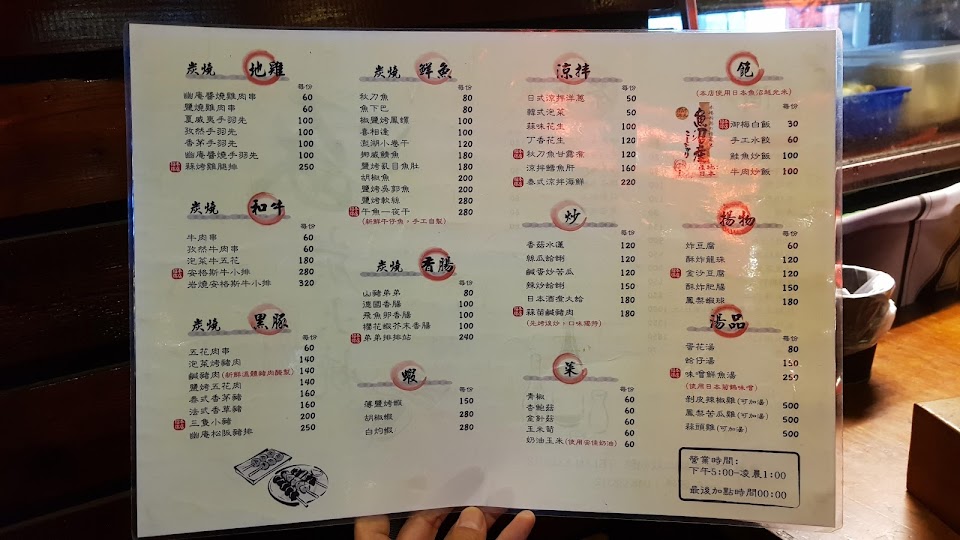 炭燒 地雞
每份
幽庵醬燒雞肉串 60
鹽燒雞肉串 60
夏威夷手羽先 100
孜然手羽先 100
香茅手羽先 100
幽庵醬燒手羽先 100
蒜烤雞腿排 250
炭燒 和牛
每份
牛肉串 60
孜然牛肉串 60
泡菜牛五花 180
安格斯牛小排 280
岩燒安格斯牛小排 320
炭燒 黑豚
每份
五花肉串 60
泡菜烤豬肉 140
鹹豬肉(新鮮溫體豬肉醃製) 140
鹽烤五花肉 140
泰式香茅豬 160
法式香草豬 160
三隻小豬 200
幽庵松阪豬排 250
炭燒 鮮魚
每份
秋刀魚 80
魚下巴 80
椒鹽烤鳳螺 100
喜相逢 100
澎湖小卷干 120
挪威鯖魚 180
鹽烤虱目魚肚 180
胡椒魚 200
鹽烤吳郭魚 200
鹽烤軟絲 280
午魚一夜干 280
(新鮮午仔魚，手工自製)
炭燒 香腸
每份
山豬弟弟 80
德國香腸 100
飛魚卵香腸 100
櫻花蝦芥末香腸 100
弟弟排排站 240
蝦
每份
薄鹽烤蝦 150
胡椒蝦 280
白灼蝦 280
涼拌
每份
日式涼拌洋蔥 50
韓式泡菜 50
蒜味花生 100
丁香花生 100
秋刀魚甘露煮 130
涼拌鱈魚肝 160
泰式涼拌海鮮 220
炒
每份
香菇水蓮 120
絲瓜蛤蜊 120
鹹蛋炒苦瓜 120
辣炒蛤蜊 150
日本酒煮大蛤 180
蒜苗鹹豬肉 180
(先烤後炒，口味獨特)
菜
每份
青椒 60
杏鮑菇 60
金針菇 60
玉米筍 60
奶油玉米(使用安佳奶油) 60
飽
(本店使用日本魚沼越光米)
每份
魚沼產
御梅白飯 30
手工水餃 60
鮭魚炒飯 100
牛肉炒飯 100
揚物
每份
炸豆腐 60
酥炸龍珠 120
金沙豆腐 120
酥炸肥腸 150
鳳梨蝦球 180
湯品
每份
香花湯 80
蛤仔湯 150
味噌鮮魚湯 250
(使用日本菊鶴味噌)
剝皮辣椒雞(可加湯) 500
鳳梨苦瓜雞(可加湯) 500
蒜頭雞(可加湯) 500
營業時間：
下午5:00~凌晨1:00
最後加點時間00:00